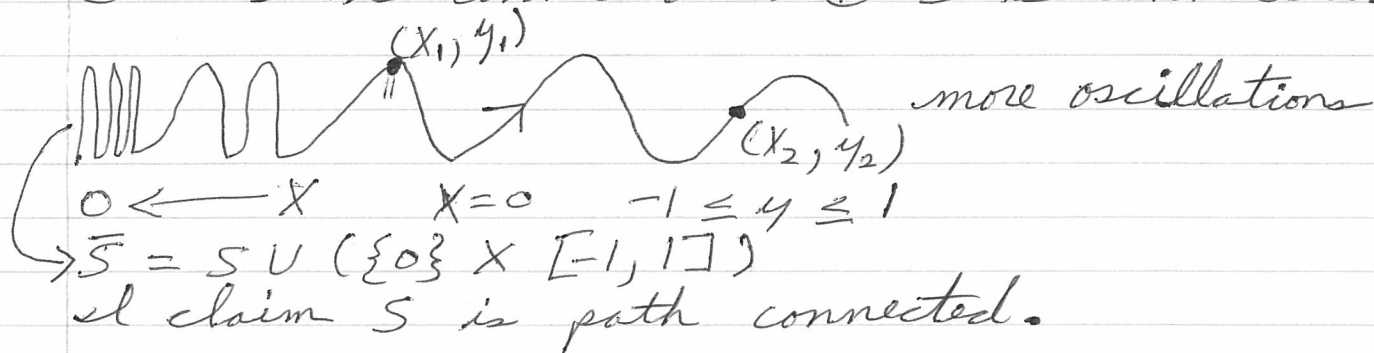 (x₁, y₁)
more oscillations
(x₂, y₂)
0 ← x    x=0    -1 ≤ y ≤ 1
S̅ = S ∪ ({0} × [-1, 1])
I claim S is path connected.